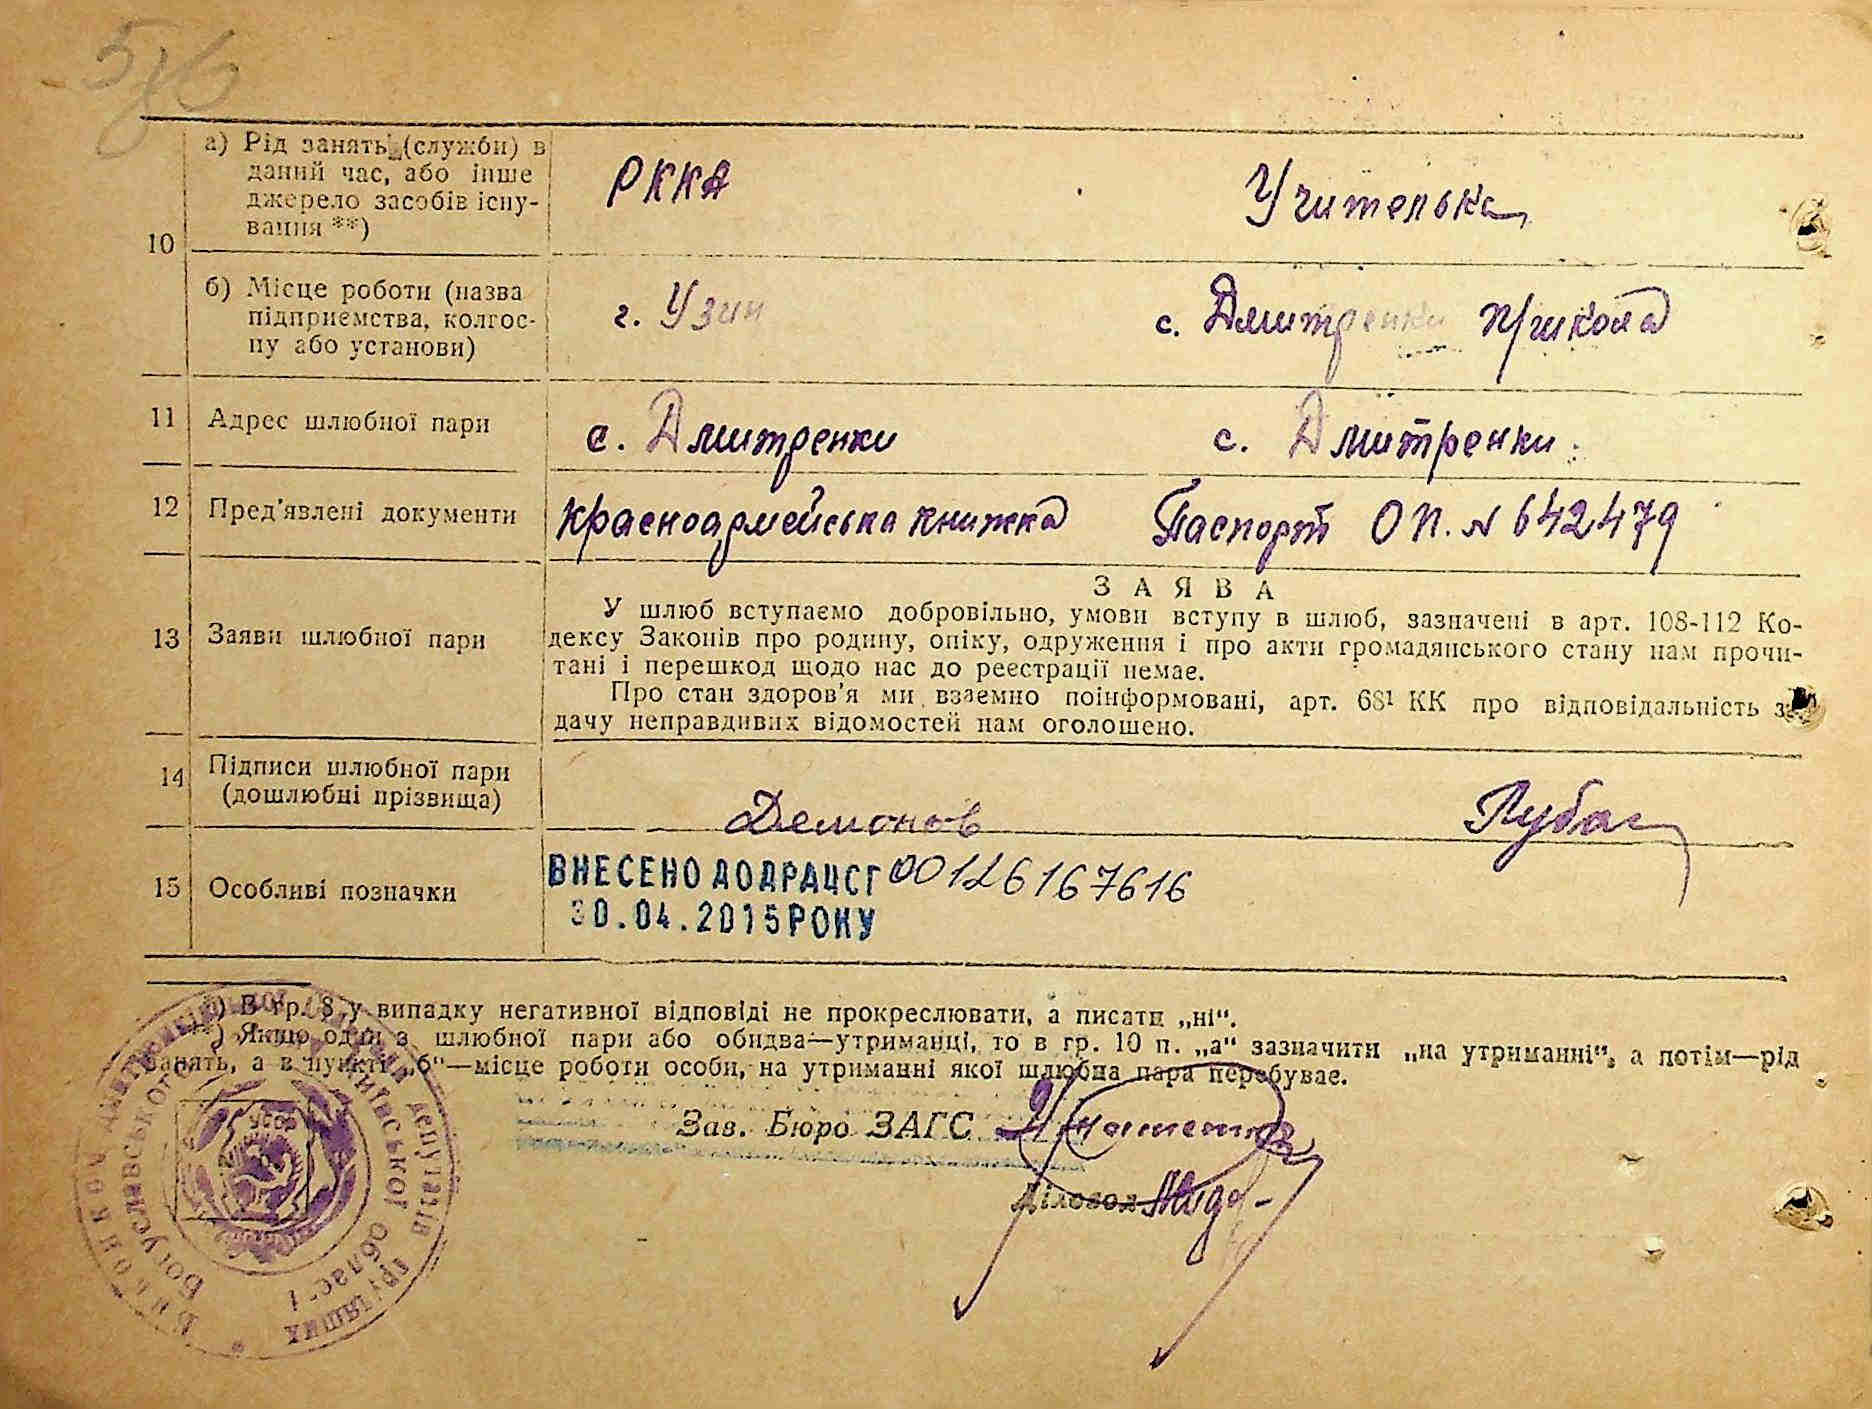 10
а) Рід занять (служби) в
даний час, або інше
джерело засобів існу-
вання **)
РККА
Учителька
б) Місце роботи (назва
підприємства, колгос-
пу або установи)
г. Узин
с. Дмитренки п/школа
11
Адрес шлюбної пари
с. Дмитренки
с. Дмитренки
12
Пред’явлені документи
Красноармейська книжка
Паспорт ОП. N 642479
13
Заяви шлюбної пари
ЗАЯВА
У шлюб вступаємо добровільно, умови вступу в шлюб, зазначені в арт. 108-112 Ко-
дексу Законів про родину, опіку, одруження і про акти громадянського стану нам прочи-
тані і перешкод щодо нас до реєстрації немає.
Про стан здоров’я ми взаємно поінформовані, арт. 68¹ КК про відповідальність за
дачу неправдивих відомостей нам оголошено.
14
Підписи шлюбної пари
(дошлюбні прізвища)
Демонов
15
Особливі позначки
ВНЕСЕНО ДО ДРАЦСГ 00126167616
30.04.2015 РОКУ
*) В гр. 8 у випадку негативної відповіді не прокреслювати, а писати „ні“.
**) Якщо один з шлюбної пари або обидва—утриманці, то в гр. 10 п. „а“ зазначити „на утриманні“, а потім—рід
занять, а в пункті „б“—місце роботи особи, на утриманні якої шлюбна пара перебуває.
Зав. Бюро ЗАГС
Діловод
Виконком Дмитренківської сільської ради депутатів трудящих
Богуславського р-ну Київської області
УССР